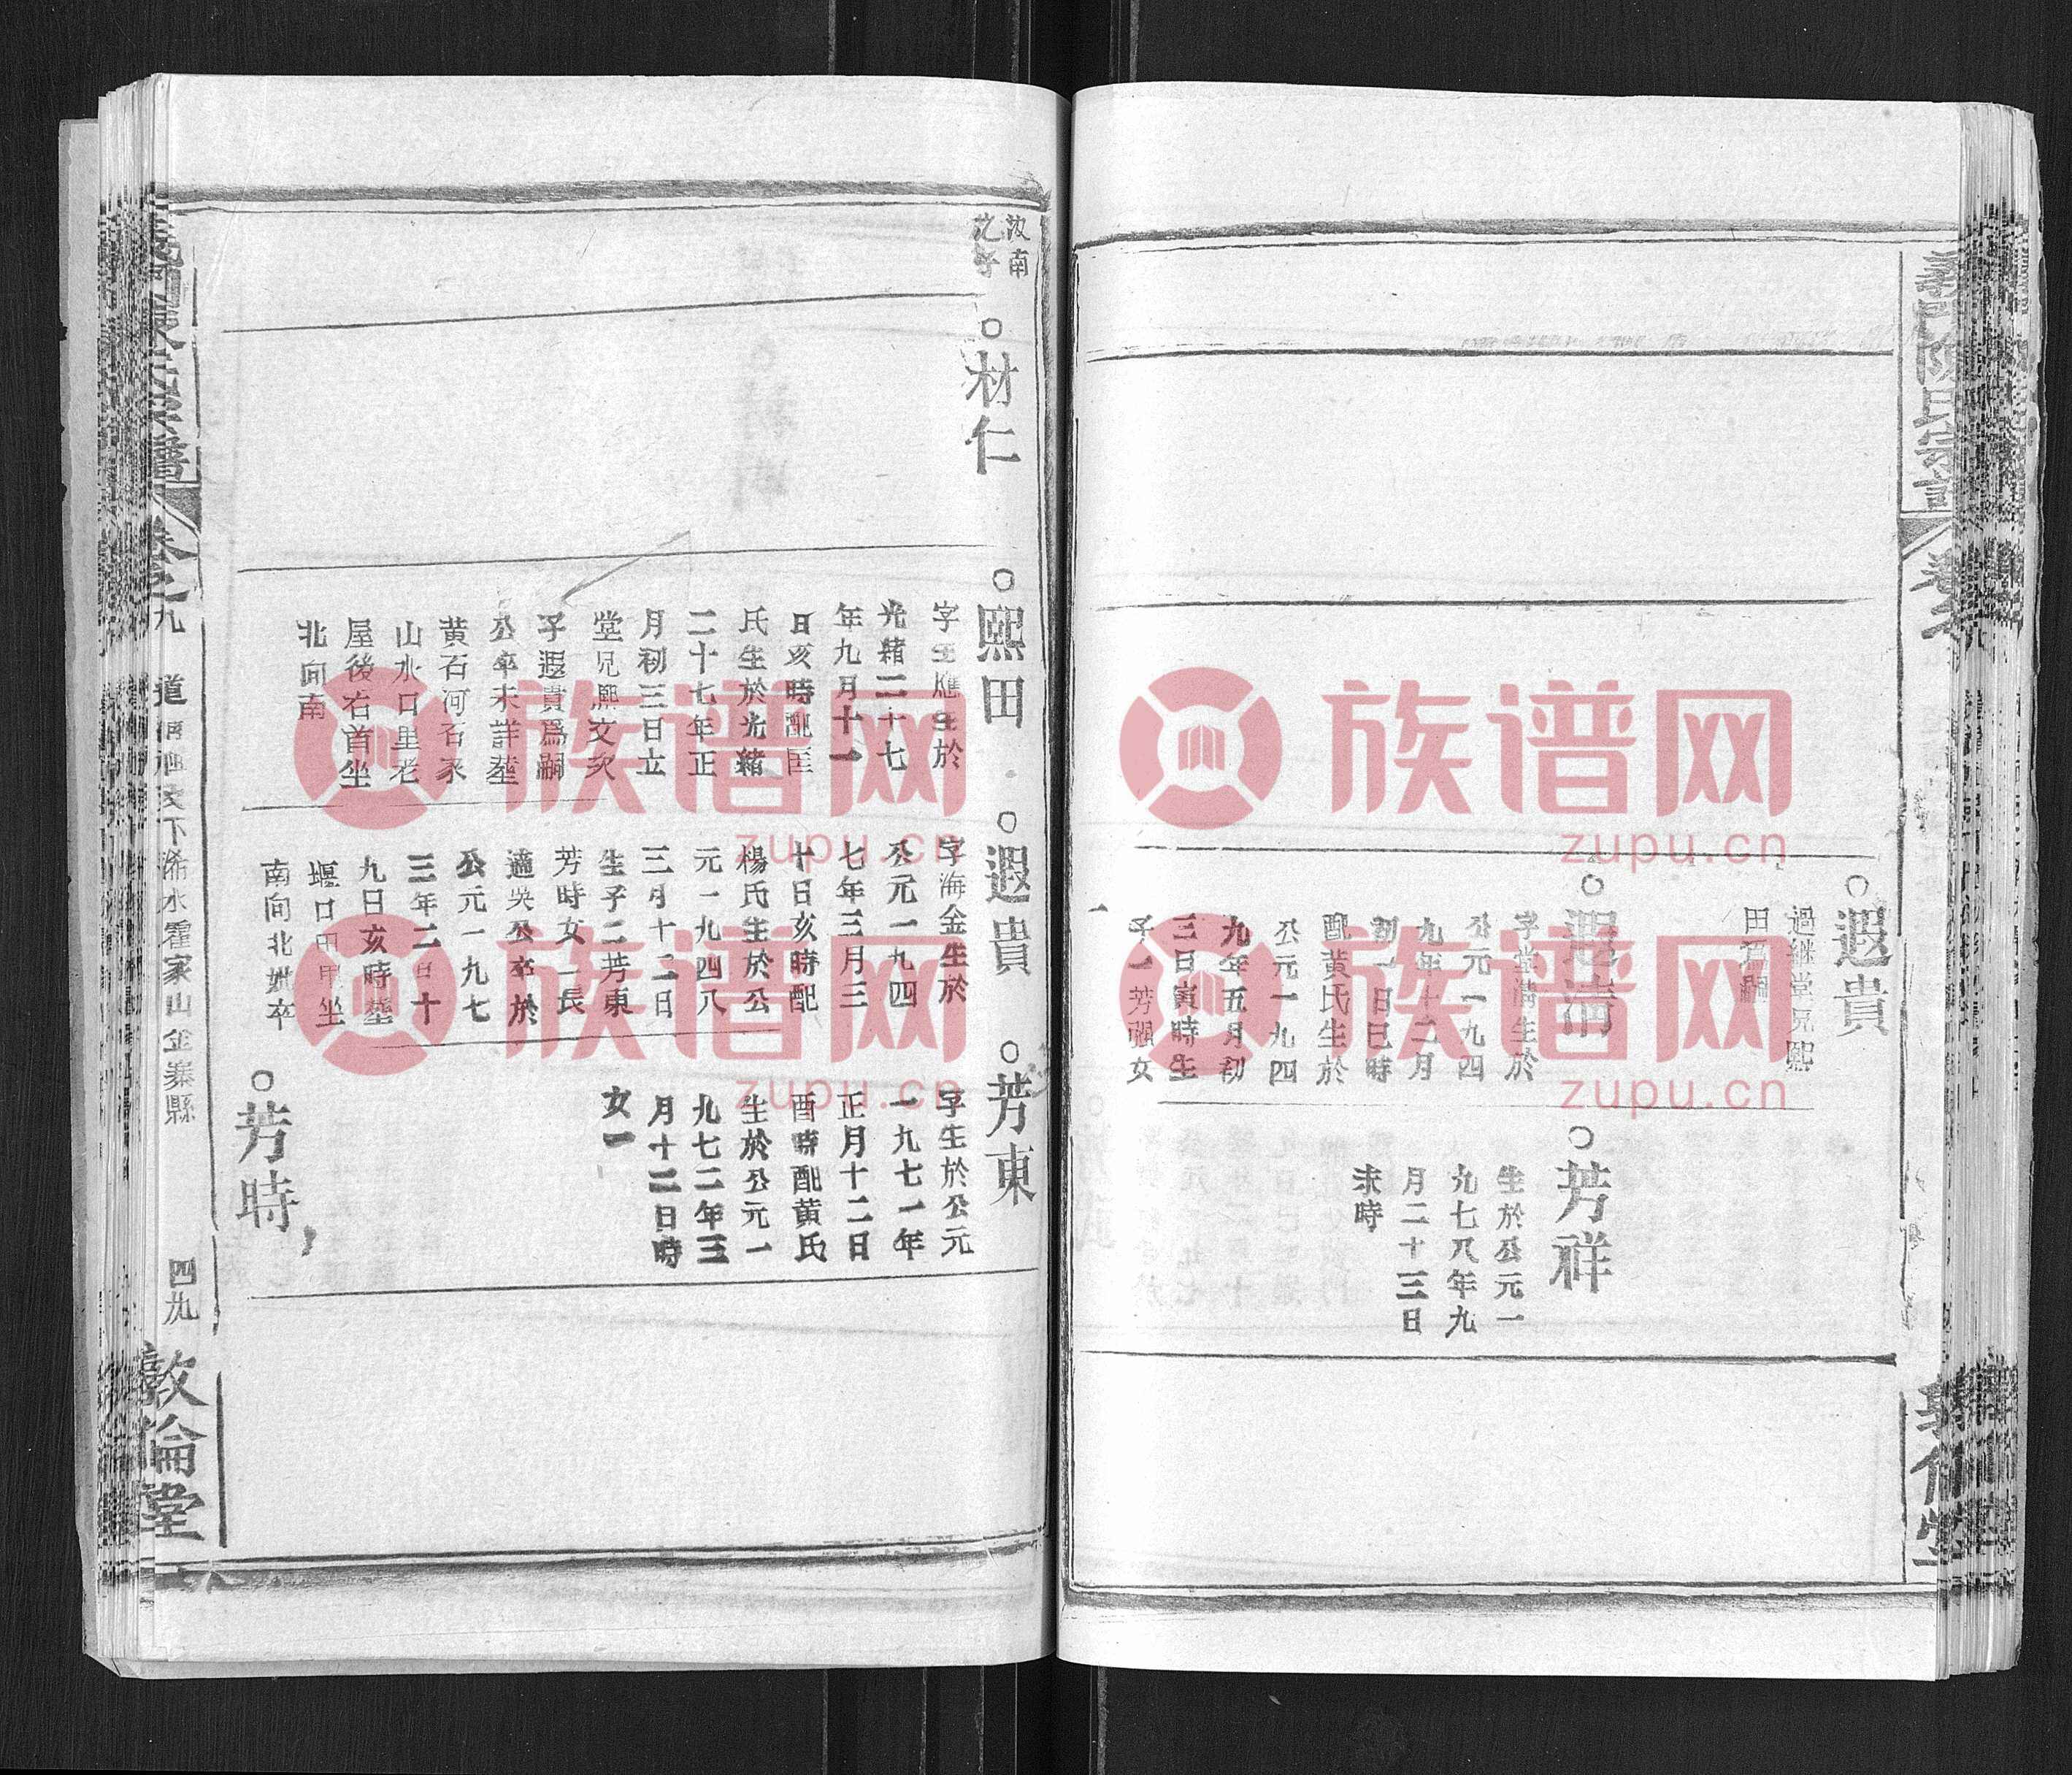 遐貴
過継堂兄熙
田爲嗣
遐清
字堂満生於
公元一九四
九年十二月
初一日巳時
配黄氏生於
公元一九四
九年五月初
三日寅時生
子一芳
女
一
芳祥
生於公元一
九七八年九
月二十三日
未時
汝南
之子
材仁
熙田
生於
光緒二十七
年九月十一
日亥時配匡
氏生於光緒
二十七年正
月初三日立
堂兄熙文次
子遐貴爲嗣
公卒未詳塟
黄石河石家
山水口里老
屋後右首坐
北向南
遐貴
字海金生於
公元一九四
七年三月三
十日亥時配
楊氏生於公
元一九四八
三月十二日
生子二芳東
芳時女一長
適吳公卒於
公元一九七
三年二月十
九日亥時塟
堰口
坐
南向北
卒
芳東
字生於公元
一九七一年
正月十二日
酉時配黄氏
生於公元一
九七二年三
月十二日時
女一
芳時
卷之九
道
下浠水霍家山金寨縣
四九
敦倫堂
族谱网
zupu.cn
族谱网
zupu.cn
族谱网
zupu.cn
族谱网
zupu.cn